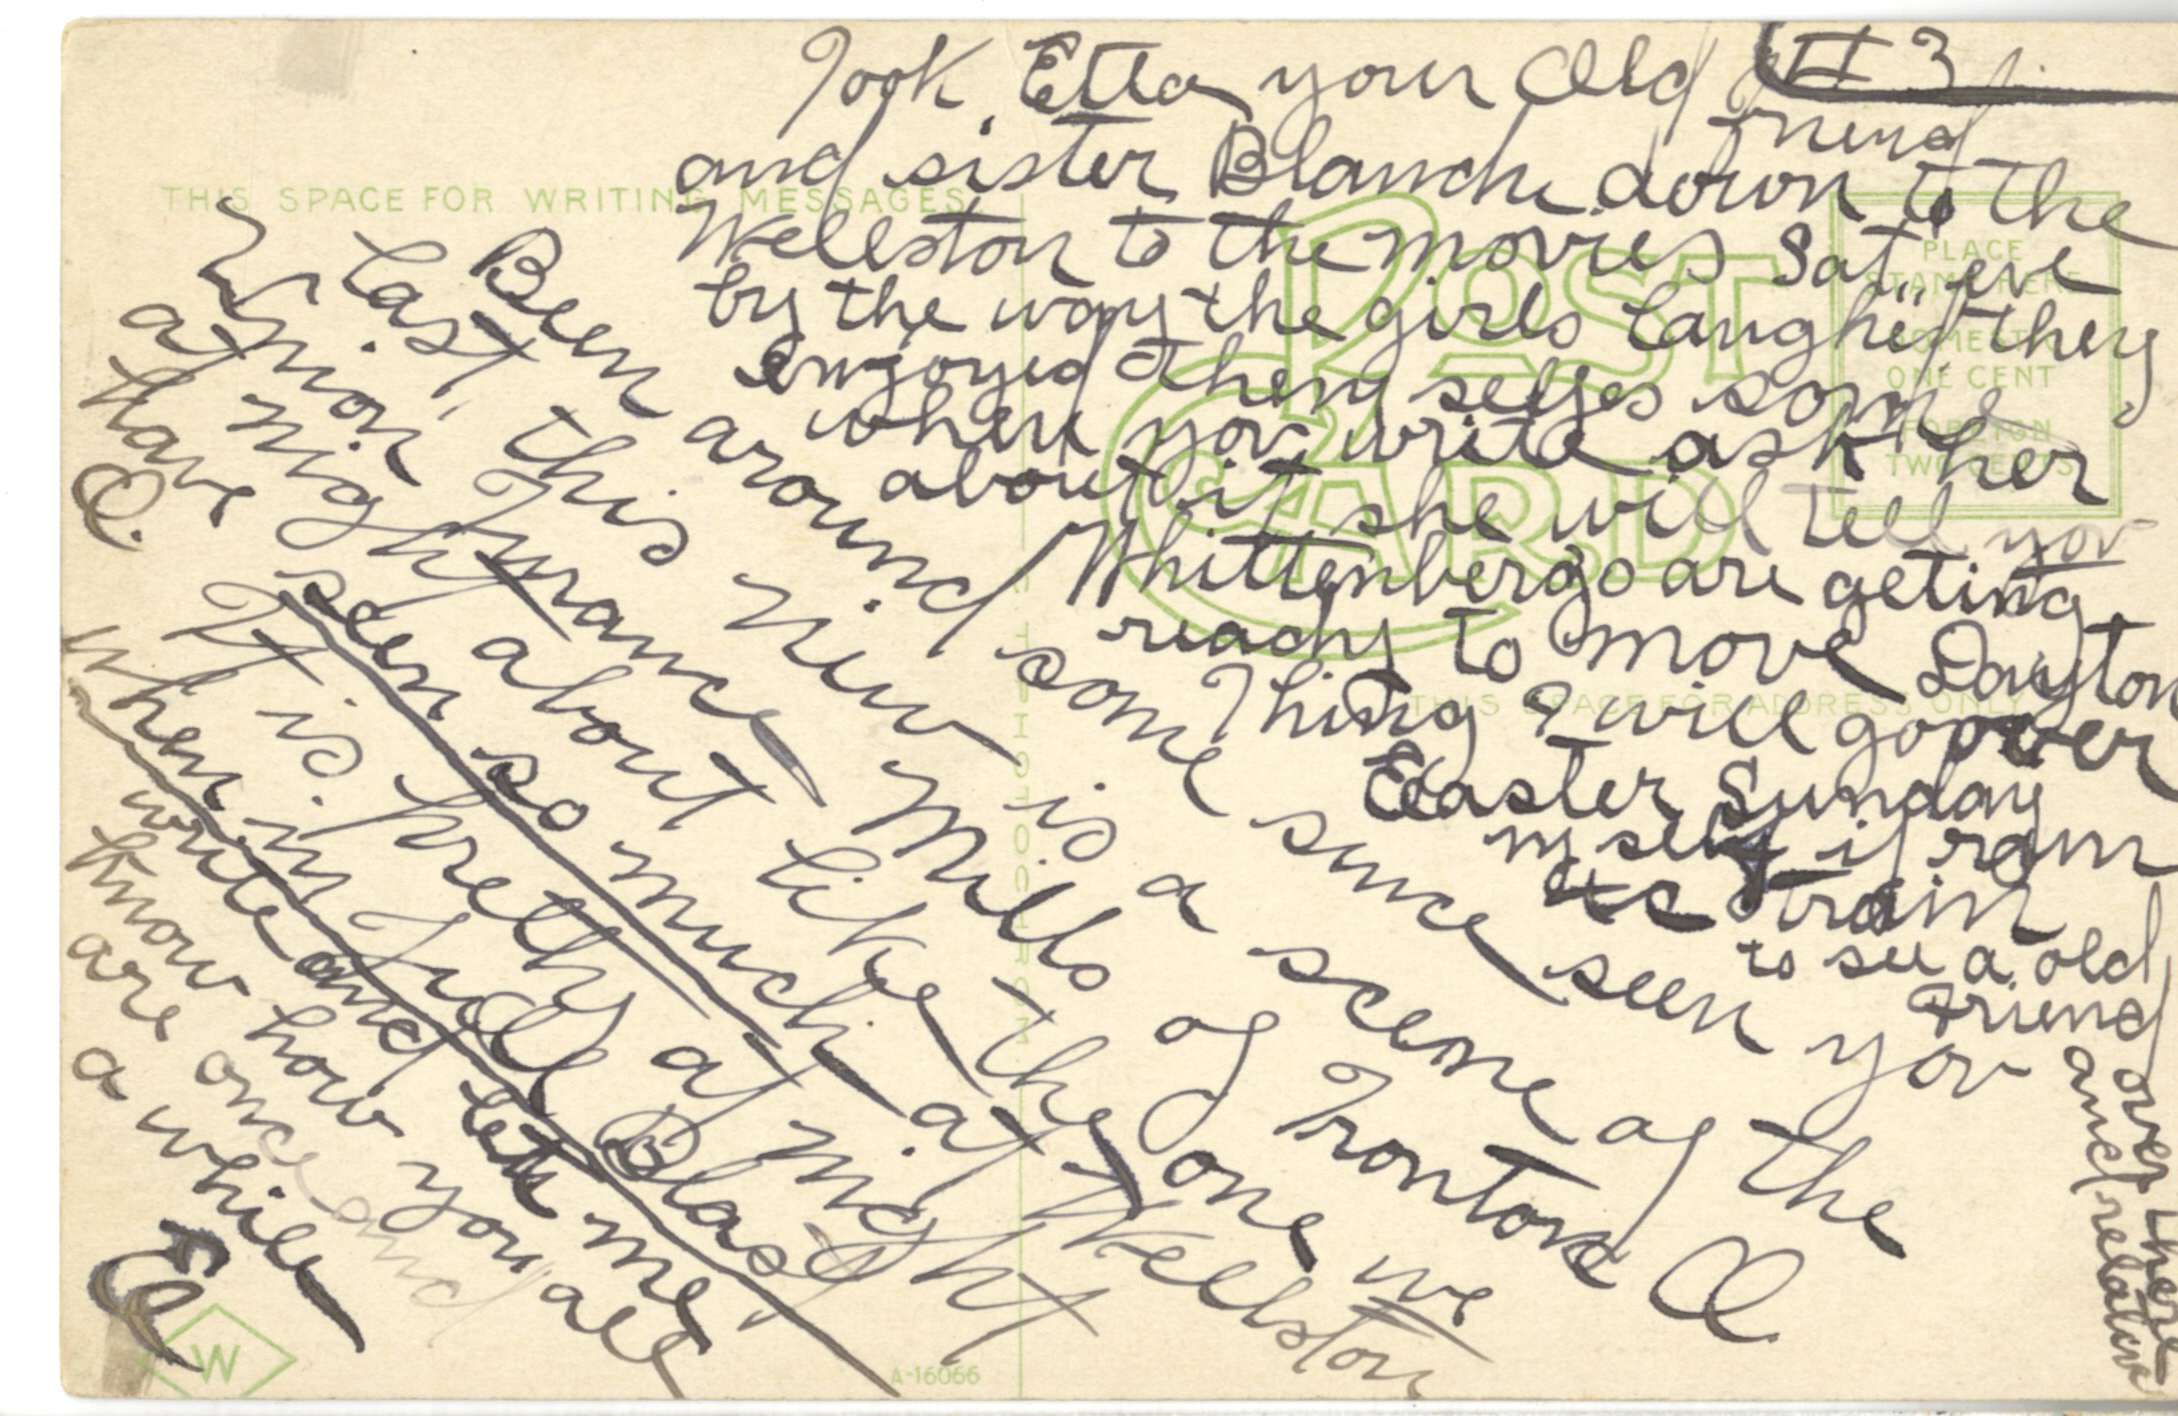 # 3
Took Etta your Old friend
and sister Blanch down to the
Wellston to the movies Sat, eve
by the way the girls laughed they
enjoyed them selfes some
when you write ask her
about it she will tell you
Whittenbergs are geting
ready to move Dayton
Thing I will go over
Easter Sunday
my self if
train
to see a old
Friend over there
and relation
Been around some since seen you
Last, this is a scene of the
Union New Mills of Ironton O.
at night Furnance about like the one we
have seen so much at Wellston
O. It is pretty at night
when in full Blast
write and let me
know how you all
are once and
a while
Ed
THIS SPACE FOR WRITING MESSAGES
POST CARD
PLACE
STAMP HERE
DOMESTIC
ONE CENT
FOREIGN
TWO CENTS
THIS SPACE FOR ADDRESS ONLY
W
A-16066